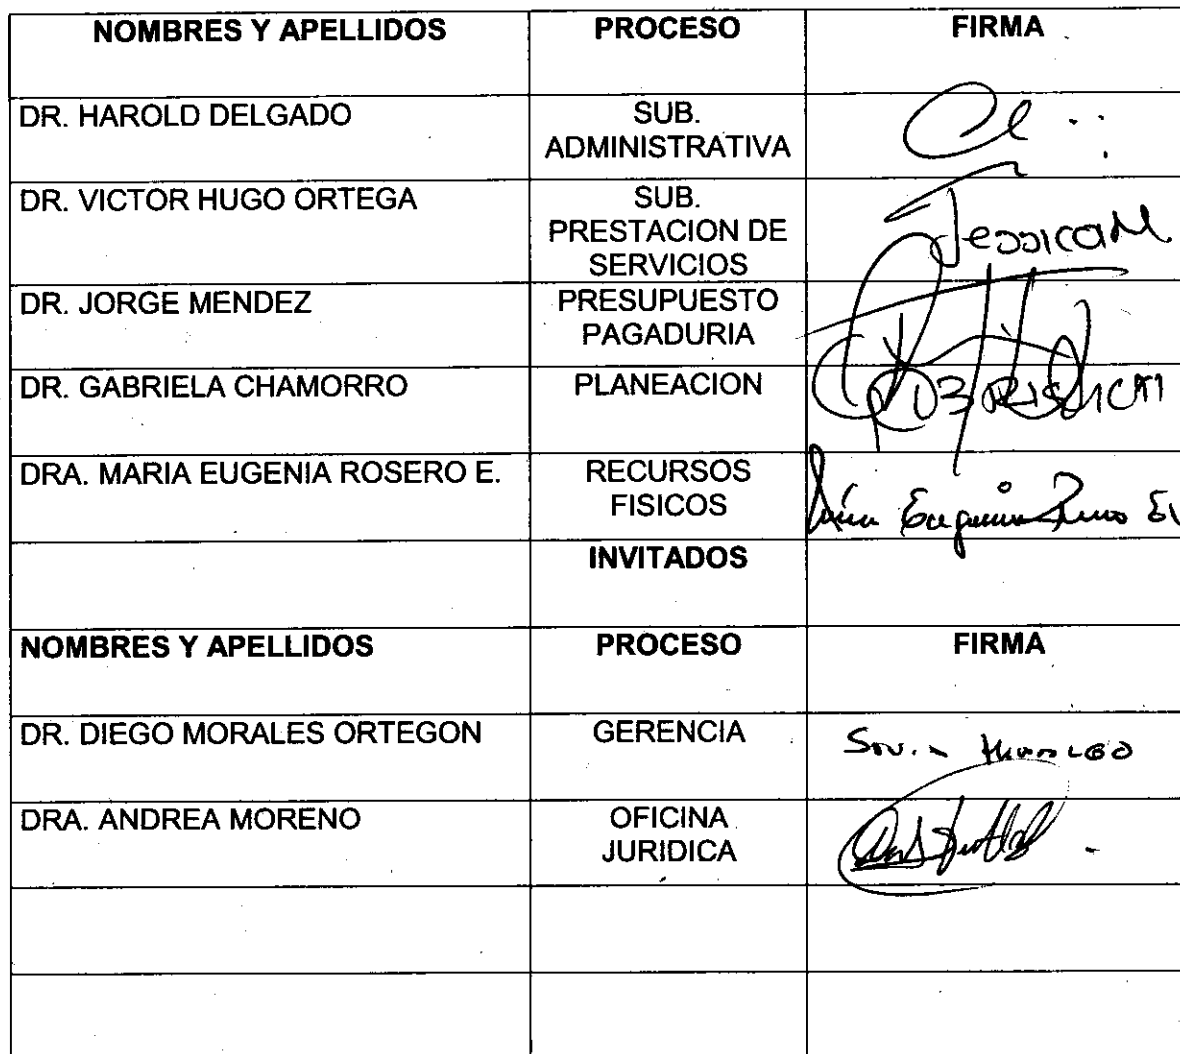 NOMBRES Y APELLIDOS PROCESO FIRMA
DR. HAROLD DELGADO SUB.
ADMINISTRATIVA
DR. VICTOR HUGO ORTEGA SUB.
PRESTACION DE
SERVICIOS
Jessica M
DR. JORGE MENDEZ PRESUPUESTO
PAGADURIA
DR. GABRIELA CHAMORRO PLANEACION
DRA. MARIA EUGENIA ROSERO E. RECURSOS
FISICOS
Eugenia
INVITADOS
NOMBRES Y APELLIDOS PROCESO FIRMA
DR. DIEGO MORALES ORTEGON GERENCIA
DRA. ANDREA MORENO OFICINA
JURIDICA